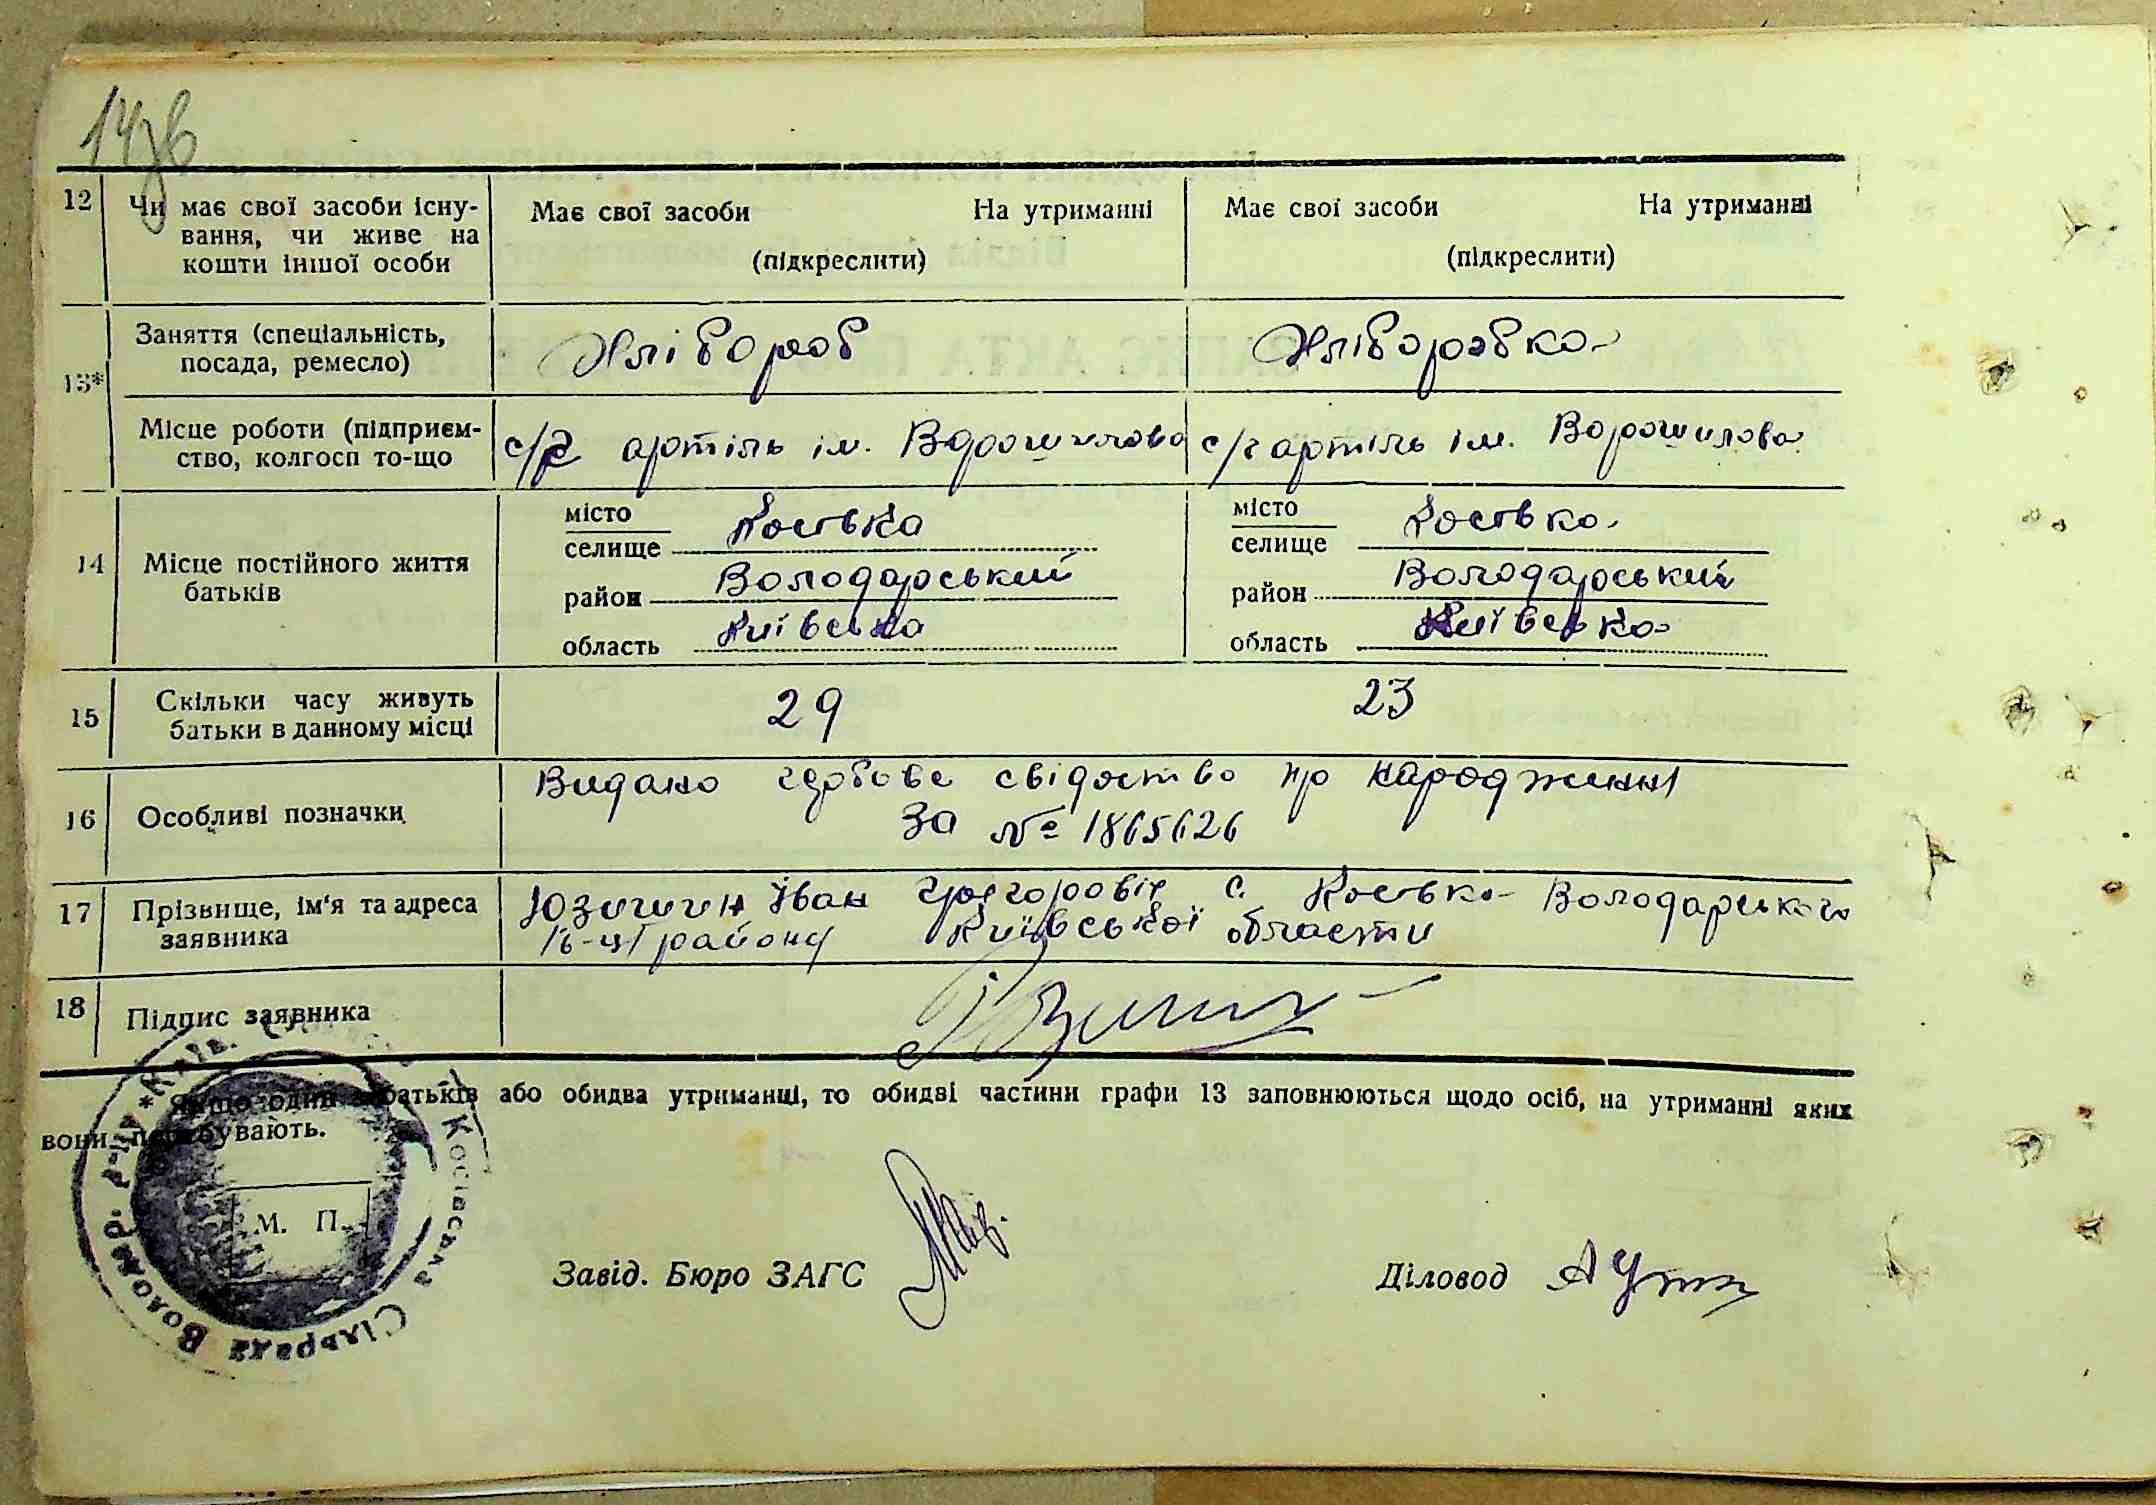 14 зв
12 Чи має свої засоби існу-
вання, чи живе на
кошти іншої особи
Має свої засоби На утриманні
(підкреслити)
Має свої засоби На утриманні
(підкреслити)
13*
Заняття (спеціальність,
посада, ремесло)
Хлібороб
Хліборобка
Місце роботи (підприєм-
ство, колгосп то-що
с/г артіль ім. Ворошилова
с/г артіль ім. Ворошилова
14 Місце постійного життя
батьків
місто
селище Косівка
район Володарський
область Київська
місто
селище Косівка
район Володарський
область Київська
15 Скільки часу живуть
батьки в данному місці
29
23
16 Особливі позначки
Видано свідоство пр народження
За № 1865626
17 Прізвище, ім'я та адреса
заявника
Іван Григорович с. Косівка Володарського
району Київської области
18 Підпис заявника
Якщо один з батьків або обидва утриманці, то обидві частини графи 13 заповнюються щодо осіб, на утриманні яких
вони перебувають.
Косівська Сільрада Володар. р-ну * Київ.
М. П.
Завід. Бюро ЗАГС
Діловод